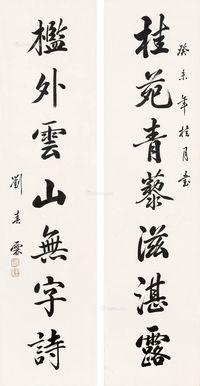 癸未年桂月書
桂苑青藜滋湛露
檻外雲山無字詩
劉春霖